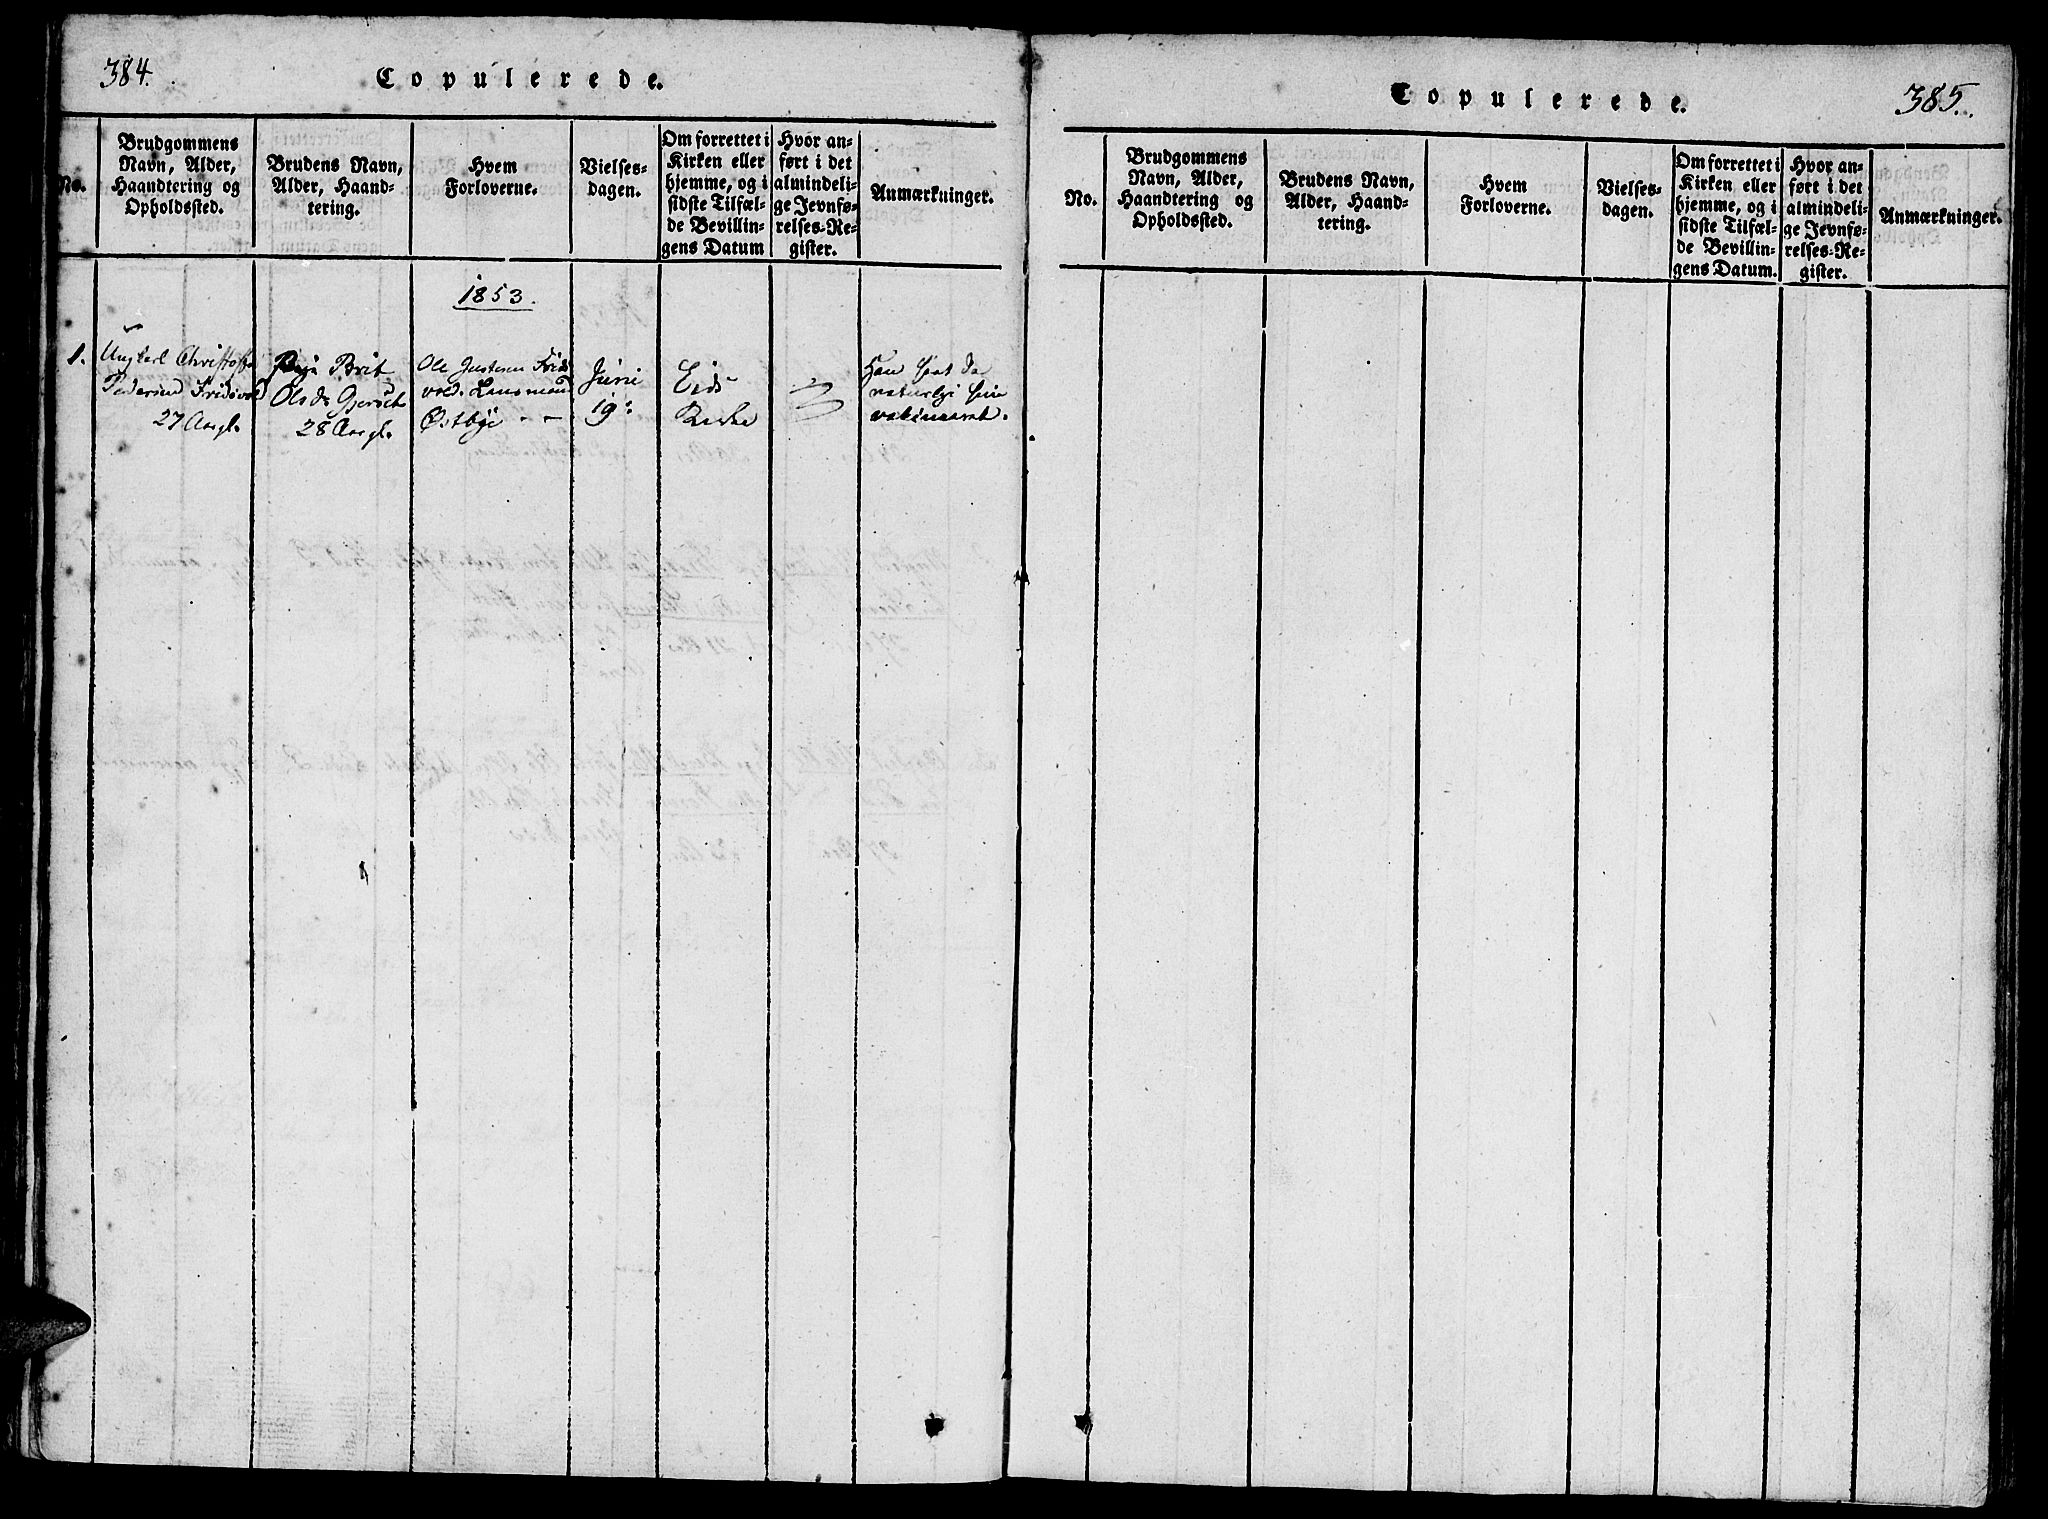 384.
Copulerede.
No.
Brudgommens
Navn, Alder,
Haandtering og
Opholdssted.
Brudens Navn,
Alder, Haand-
tering.
Hvem
Forloverne.
Vielses-
dagen.
Om forrettet i
Kirken eller
hjemme, og i
sidste Tilfæl-
de Bevillin-
gens Datum
Hvor an-
ført i det
almindeli-
ge Jevnfø-
relses-Re-
gister.
Anmærkninger.
1853.
1.
Ungkarl Christoffer
Pedersen Fridsvold
27 Aar gl.
Pige Brit
Olsd.
28 Aar gl.
Ole Justesen Frids
vold. Lensmand
Østbye - -
Juni
19:
Eids
Kirke
Han havt de
naturlige
385.
Copulerede.
No.
Brudgommens
Navn, Alder,
Haandtering og
Opholdssted.
Brudens Navn,
Alder, Haand-
tering.
Hvem
Forloverne.
Vielses-
dagen.
Om forrettet i
Kirken eller
hjemme, og i
sidste Tilfæl-
de Bevillin-
gens Datum.
Hvor an-
ført i det
almindeli-
ge Jevnfø-
relses-Re-
gister.
Anmærkninger.